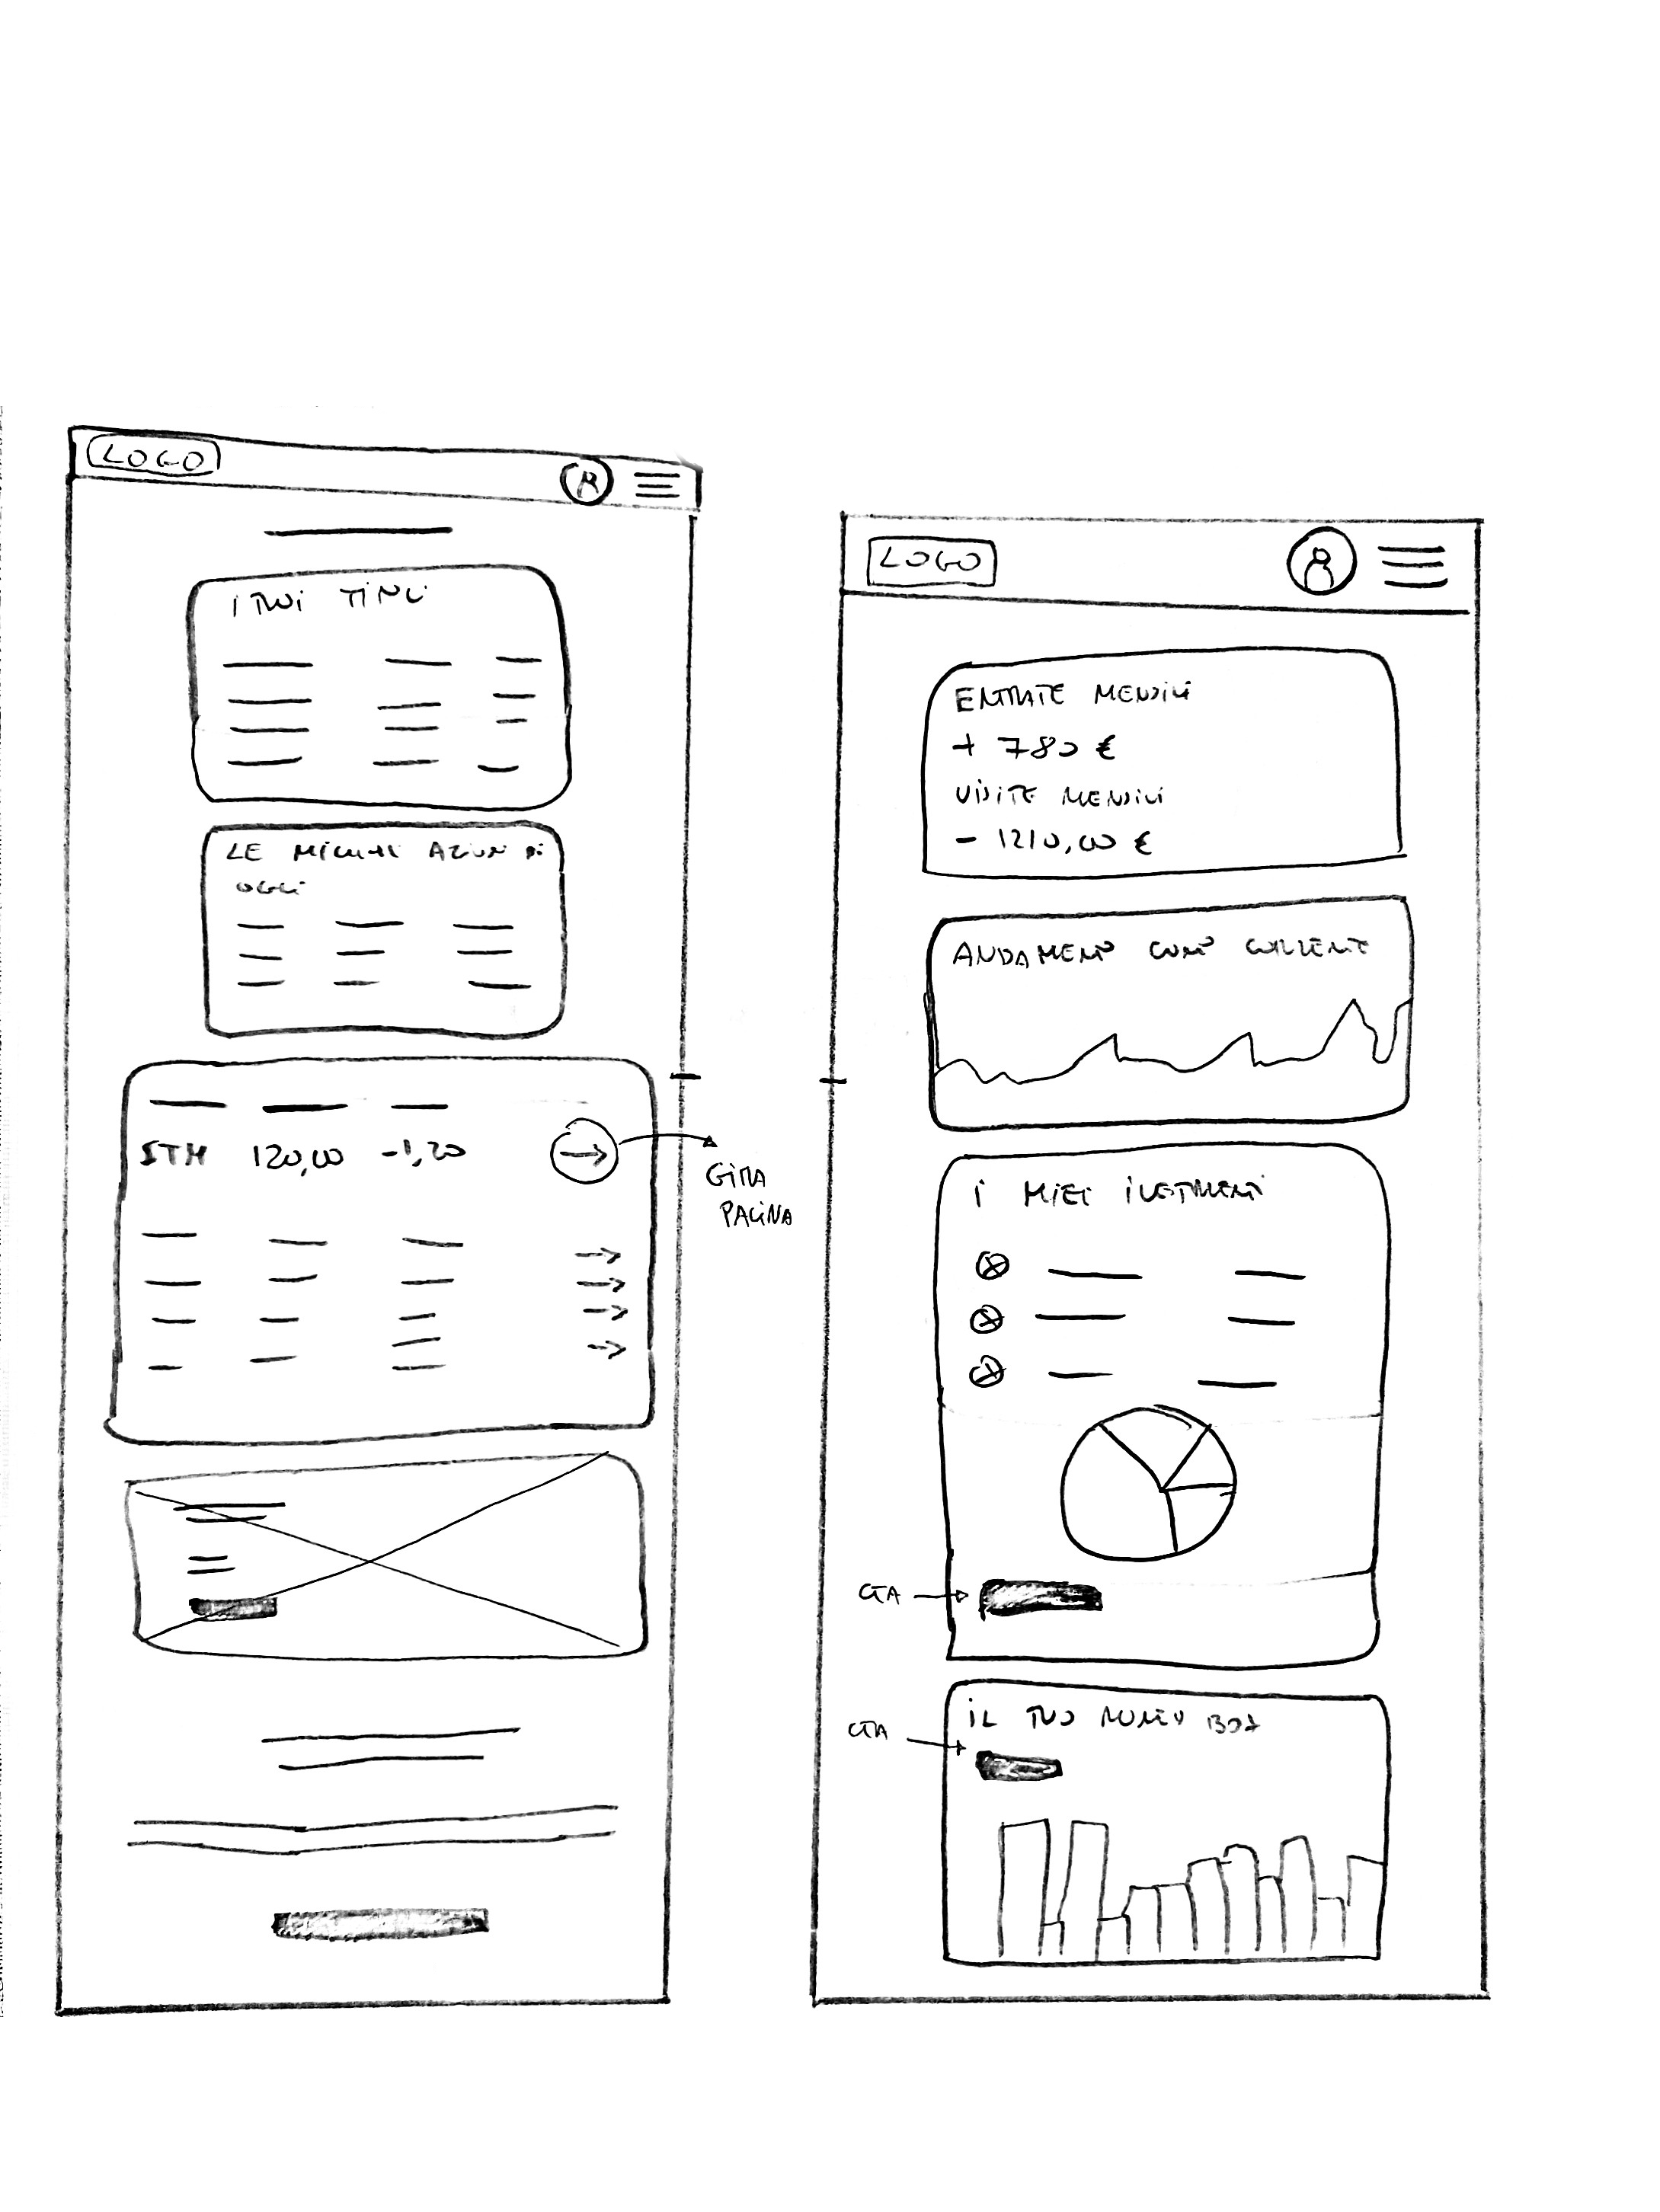 LOGO
I TUOI TITOLI
LE MIGLIORI AZIONI DI
OGGI
STM 120,00 -1,20
GIRA
PAGINA
LOGO
ENTRATE MENSILI
+ 780 €
USCITE MENSILI
- 1210,00 €
ANDAMENTO CONTO CORRENTE
I MIEI
CTA
CTA
IL TUO MONEY BOX